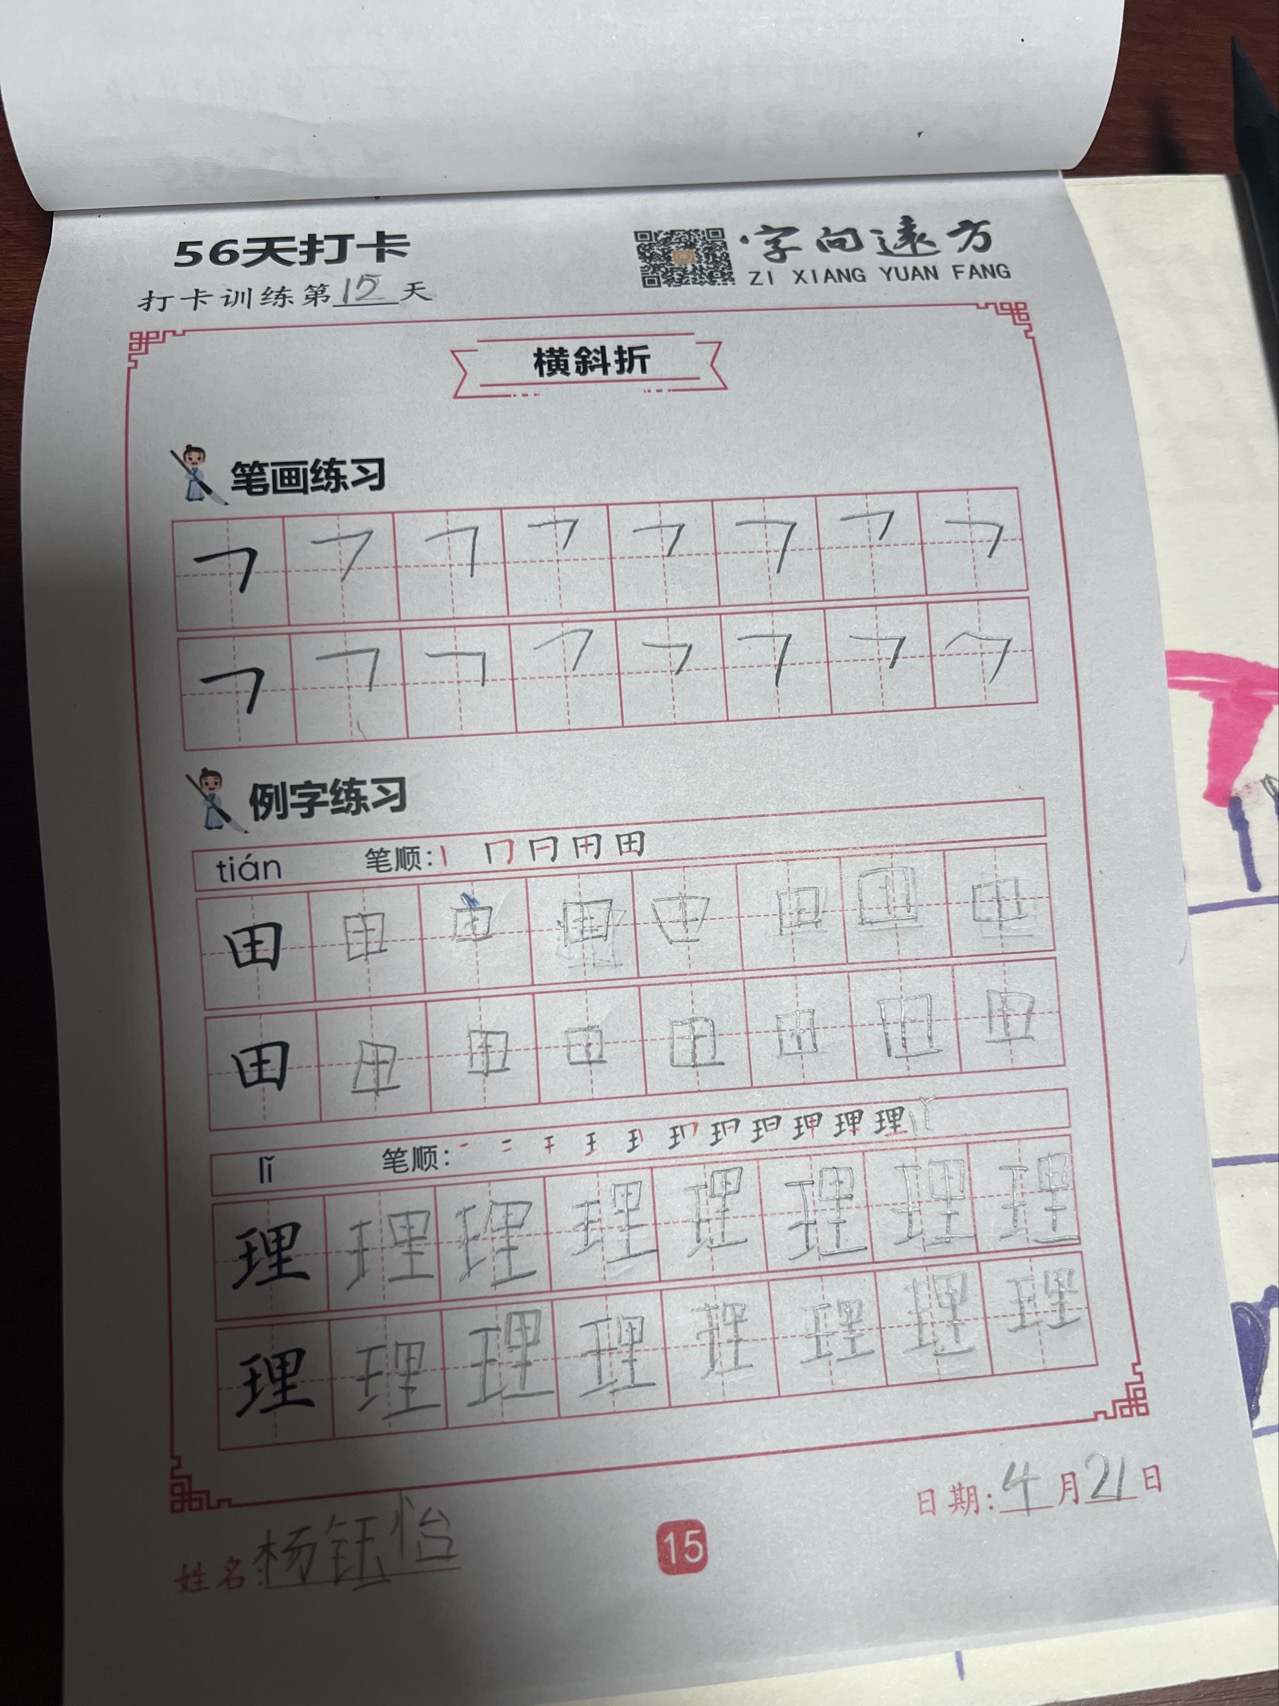 56天打卡
字向远方
ZI XIANG YUAN FANG
打卡训练第15天
横斜折
笔画练习
㇇ ㇇ ㇇ ㇇ ㇇ ㇇ ㇇ ㇇
㇇ ㇇ ㇇ ㇇ ㇇ ㇇ ㇇ ㇇
例字练习
tián 笔顺:丨 冂 日 田 田
田 田 田 田 田 田 田 田
田 田 田 田 田 田 田 田
lǐ 笔顺:
理 理 理 理 理 理 理 理
理 理 理 理 理 理 理 理
日期:4月21日
姓名杨钰怡
15